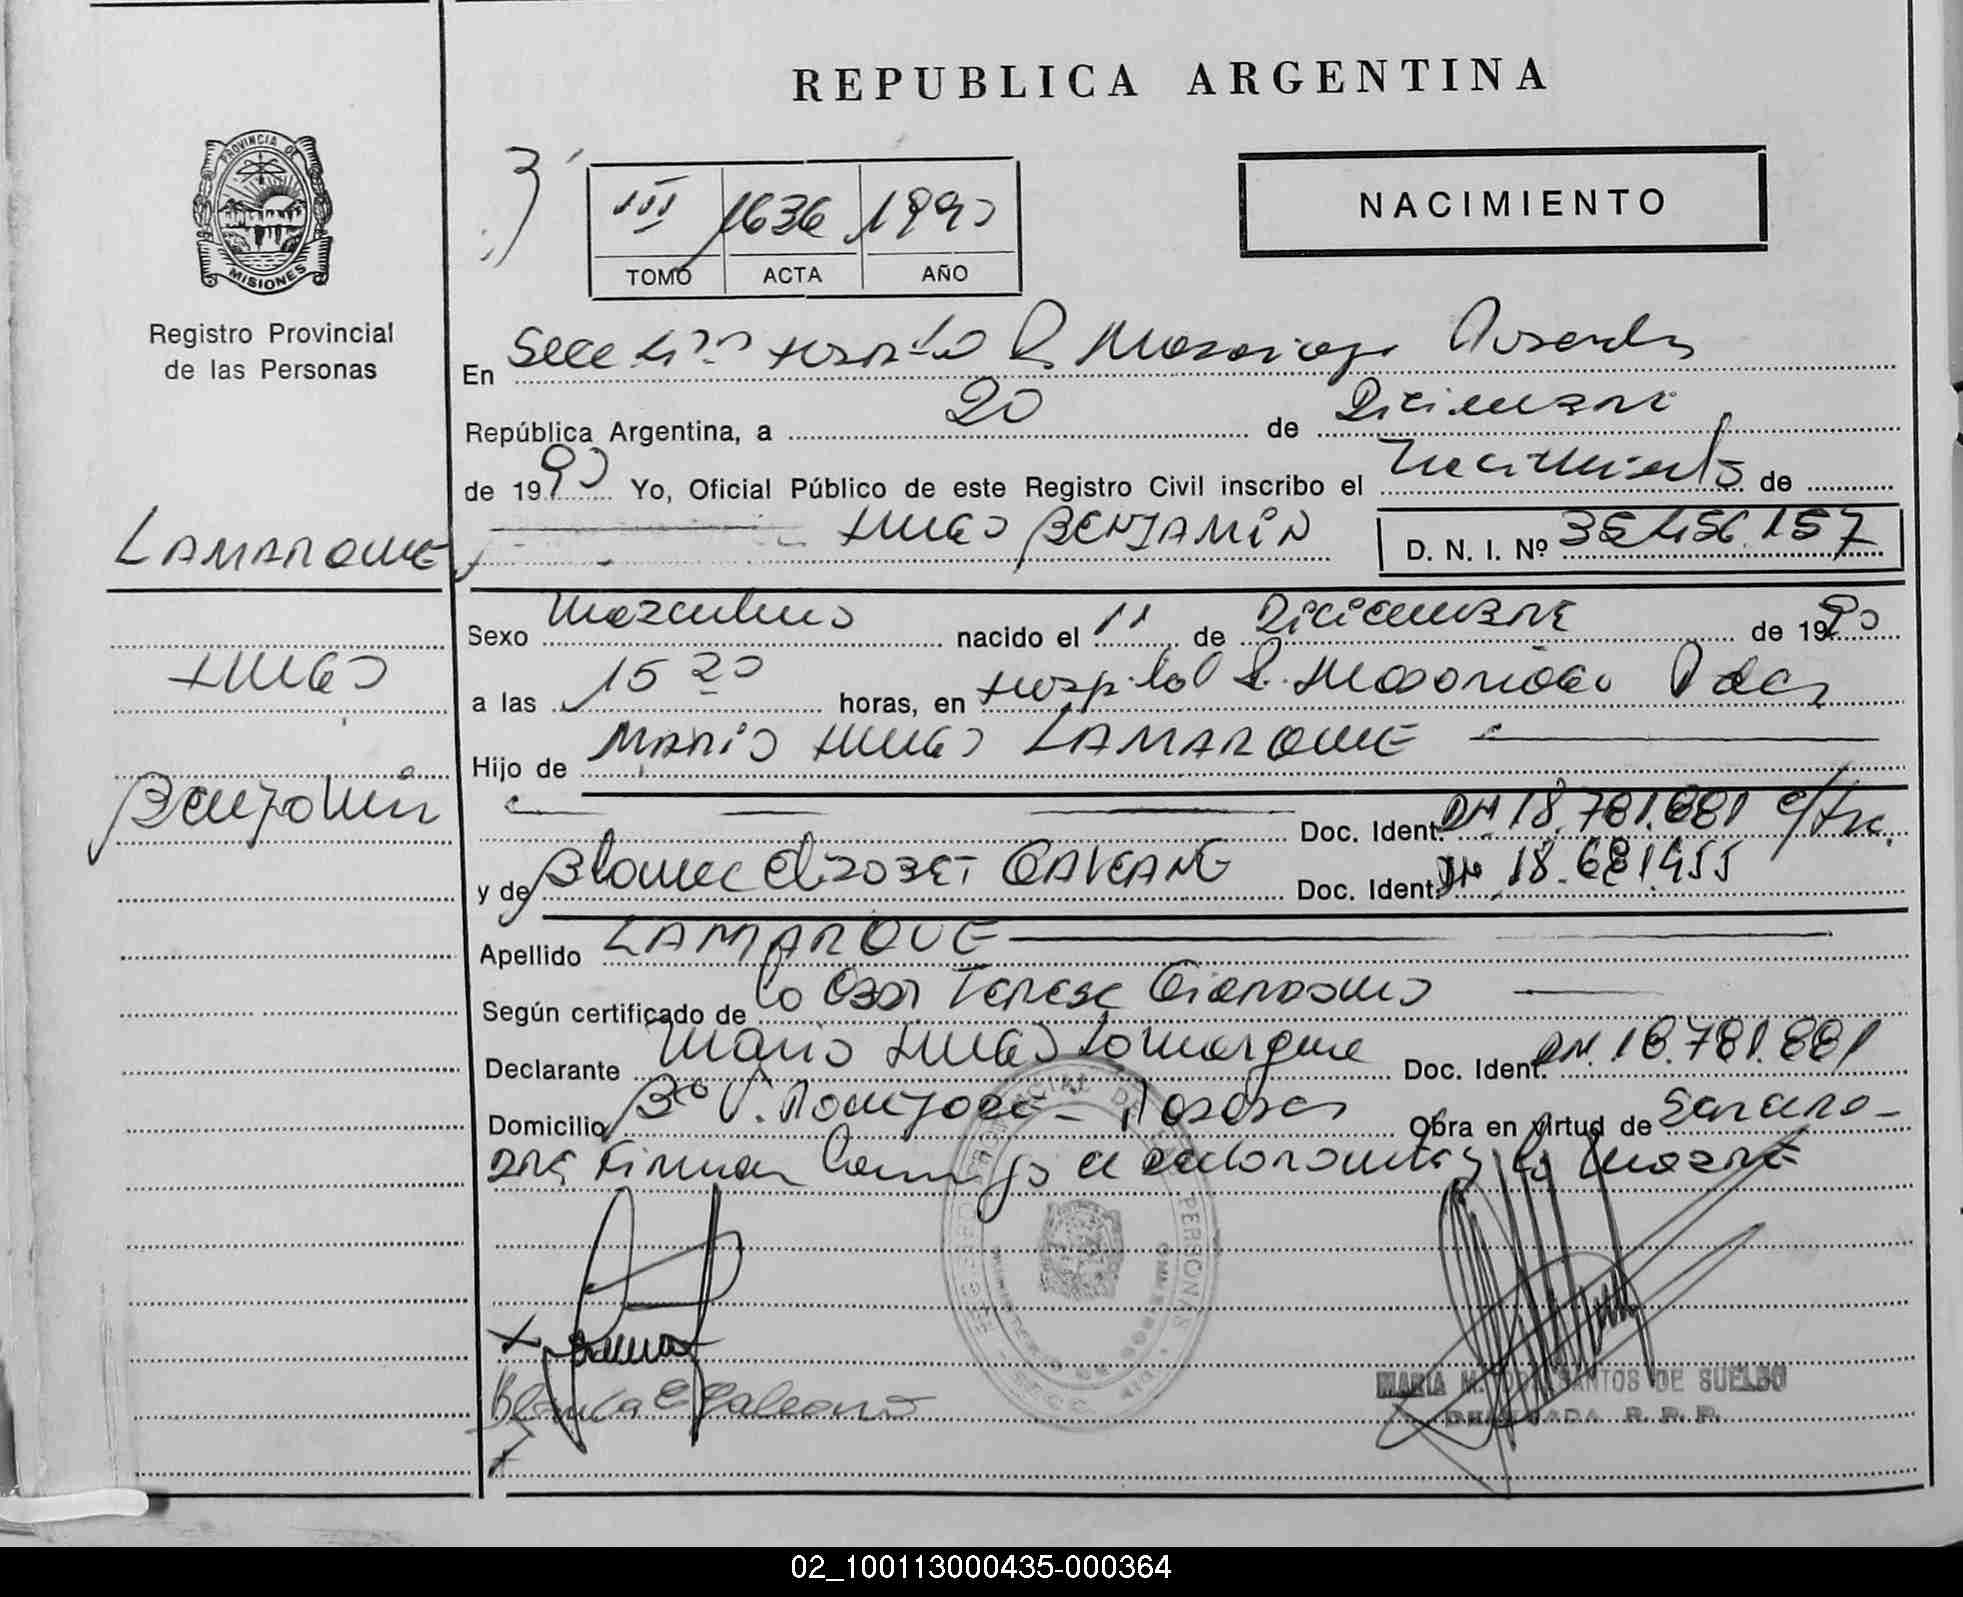 REPUBLICA ARGENTINA
PROVINCIA DE
MISIONES
Registro Provincial
de las Personas
III 1636 1990
TOMO ACTA AÑO
NACIMIENTO
En Secc
República Argentina, a 20 de Diciembre
de 1990 Yo, Oficial Público de este Registro Civil inscribo el Nacimiento de
HUGO BENJAMIN D. N. I. Nº 35.456.157
LAMARQUE
HUGO
Benjamin
Sexo Masculino nacido el 11 de Diciembre de 1990
a las 15 20 horas, en Hospital R. Madariaga Pdas
Hijo de MARIO HUGO LAMARQUE
Doc. Ident. DNI 18.781.881
y de Blanca Elizabet GALEANO Doc. Ident. DNI 18.681.455
Apellido LAMARQUE
Según certificado de la Obst Teresa
Declarante Mario HUGO Lamarque Doc. Ident. DNI 18.781.881
Domicilio Bº Posadas Obra en virtud de Ser su pa-
dre Firman el declarante y la madre
Blanca E Galeano
MARIA M. DOS SANTOS DE SUELDO
DELEGADA R. P. P.
02_100113000435-000364